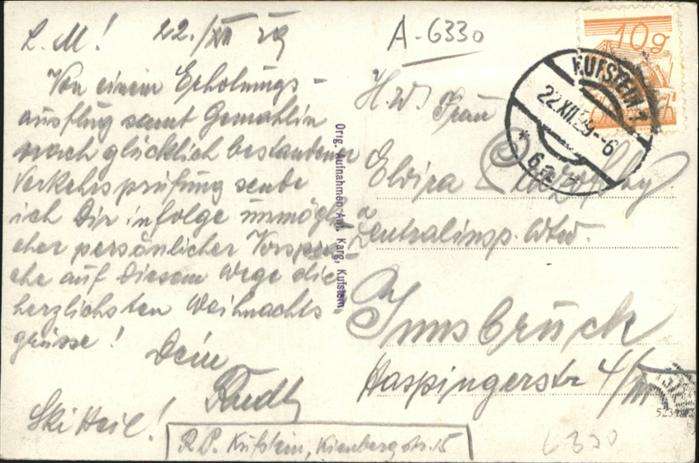 L. M! 22./XII 29
Von einem Erholungs-
ausflug samt Gemahlin
nach glücklich bestandener
Verkehrsprüfung sende
ich Dir infolge unmögli-
cher persönlicher Vorspra-
che auf diesem Wege die
herzlichsten Weihnachts
grüsse!
Dein
Rudl
Ski Heil!
R.P. Kufstein, Kienbergstr. 15
Orig.-Aufnahmen Ant. Karg, Kufstein
A-6330
10g
KUFSTEIN 1
22.XII.29.-6
* 6a *
Frau
Elvira
Zentralinsp. Wtw.
Innsbruck
Haspingerstr 4/III
6330